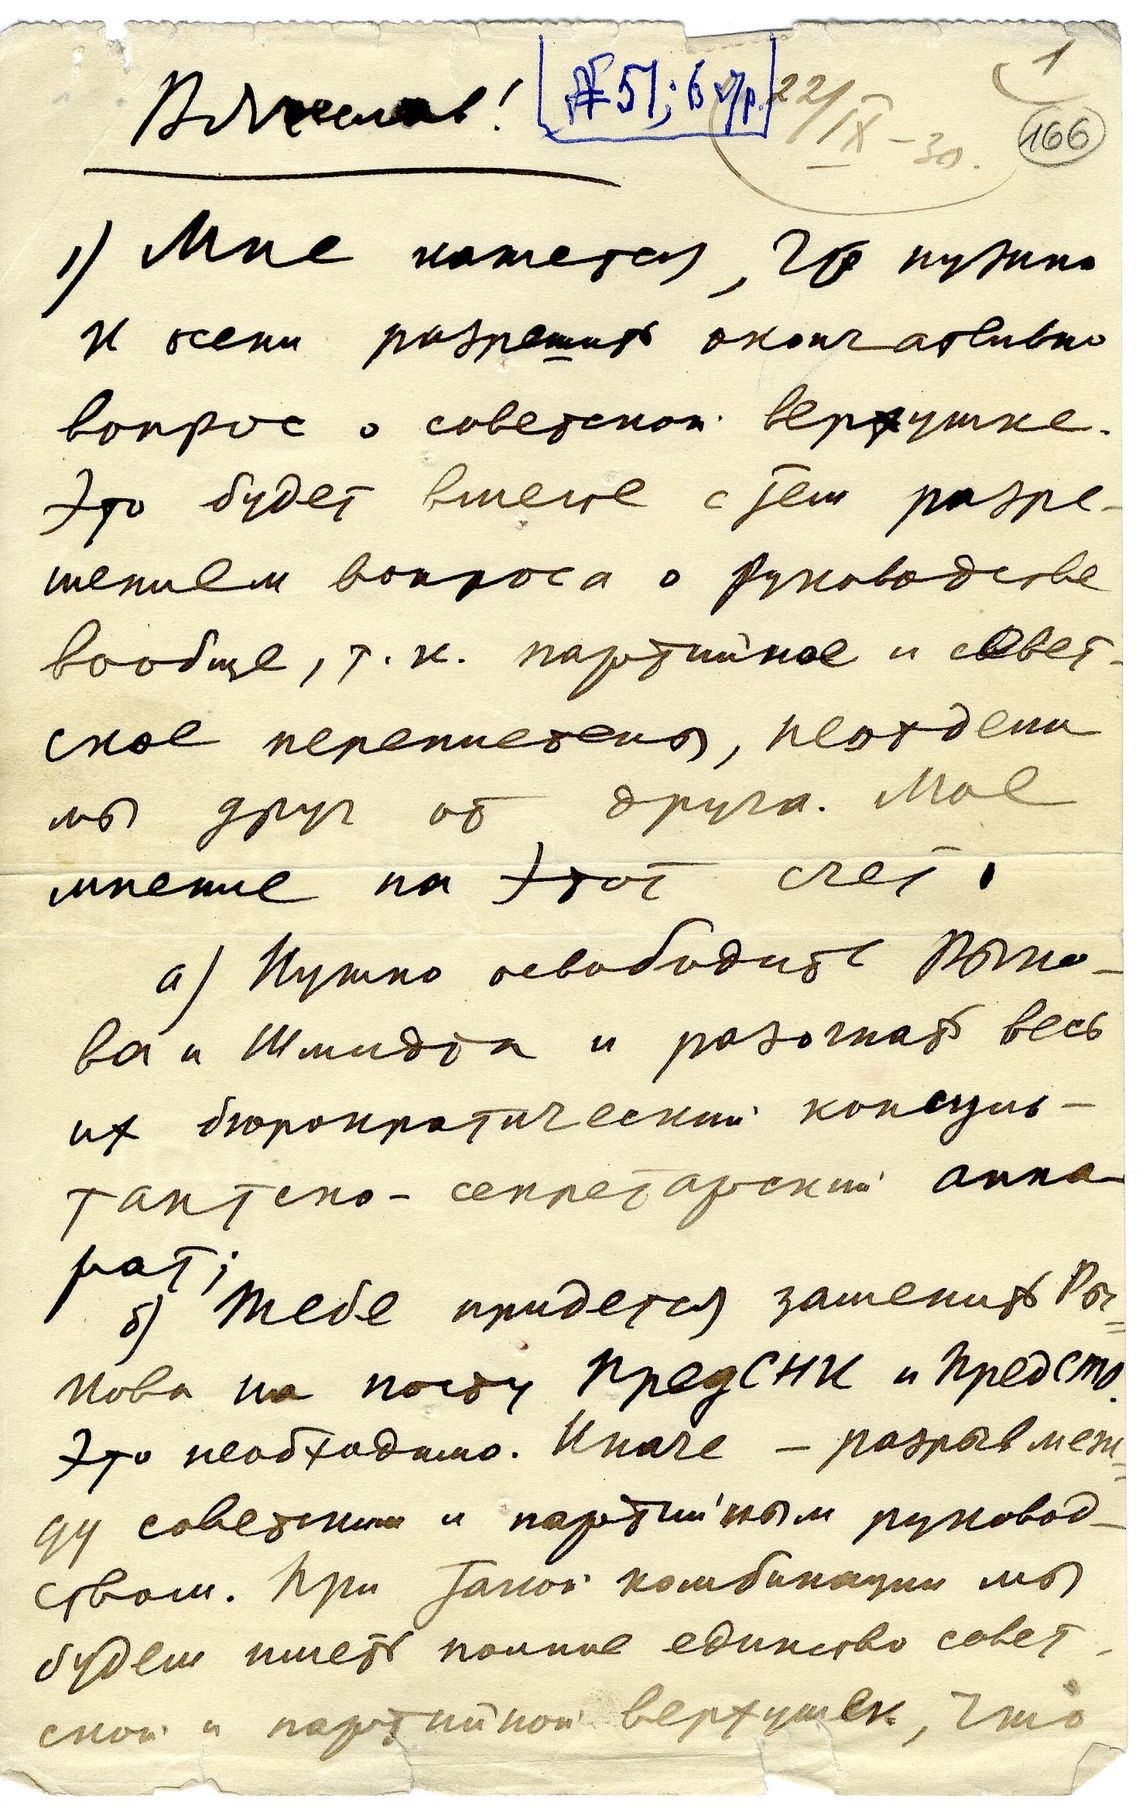 Вячеслав!
22/IX–30.
1
166
1) Мне кажется, что нужно
к осени разрешить окончательно
вопрос о советской верхушке.
Это будет вместе с тем разре-
шением вопроса о руководстве
вообще, т. к. партийное и совет-
ское переплетены, неотдели
мы друг от друга. Мое
мнение на этот счет:
а) Нужно освободить Рыко-
ва и Шмидта и разогнать весь
их бюрократический консуль-
тантско-секретарский аппа-
рат;
б) Тебе придется заменить Ры-
кова на посту ПредСНК и ПредСТО.
Это необходимо. Иначе – разрыв меж-
ду советским и партийным руковод-
ством. При такой комбинации мы
будем иметь полное единство совет-
ской и партийной верхушек, что